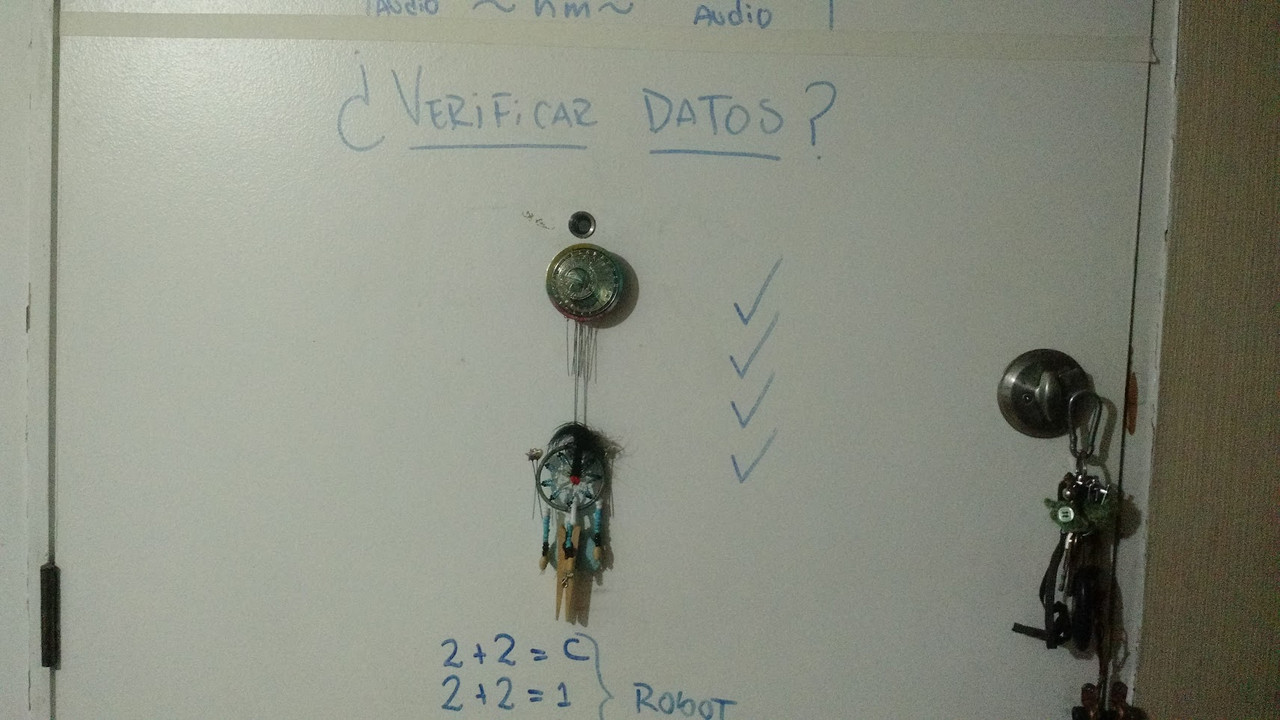 AUDIO ~ hm ~ AUDIO
¿VERIFICAR DATOS?
2+2=C
2+2=1
ROBOT